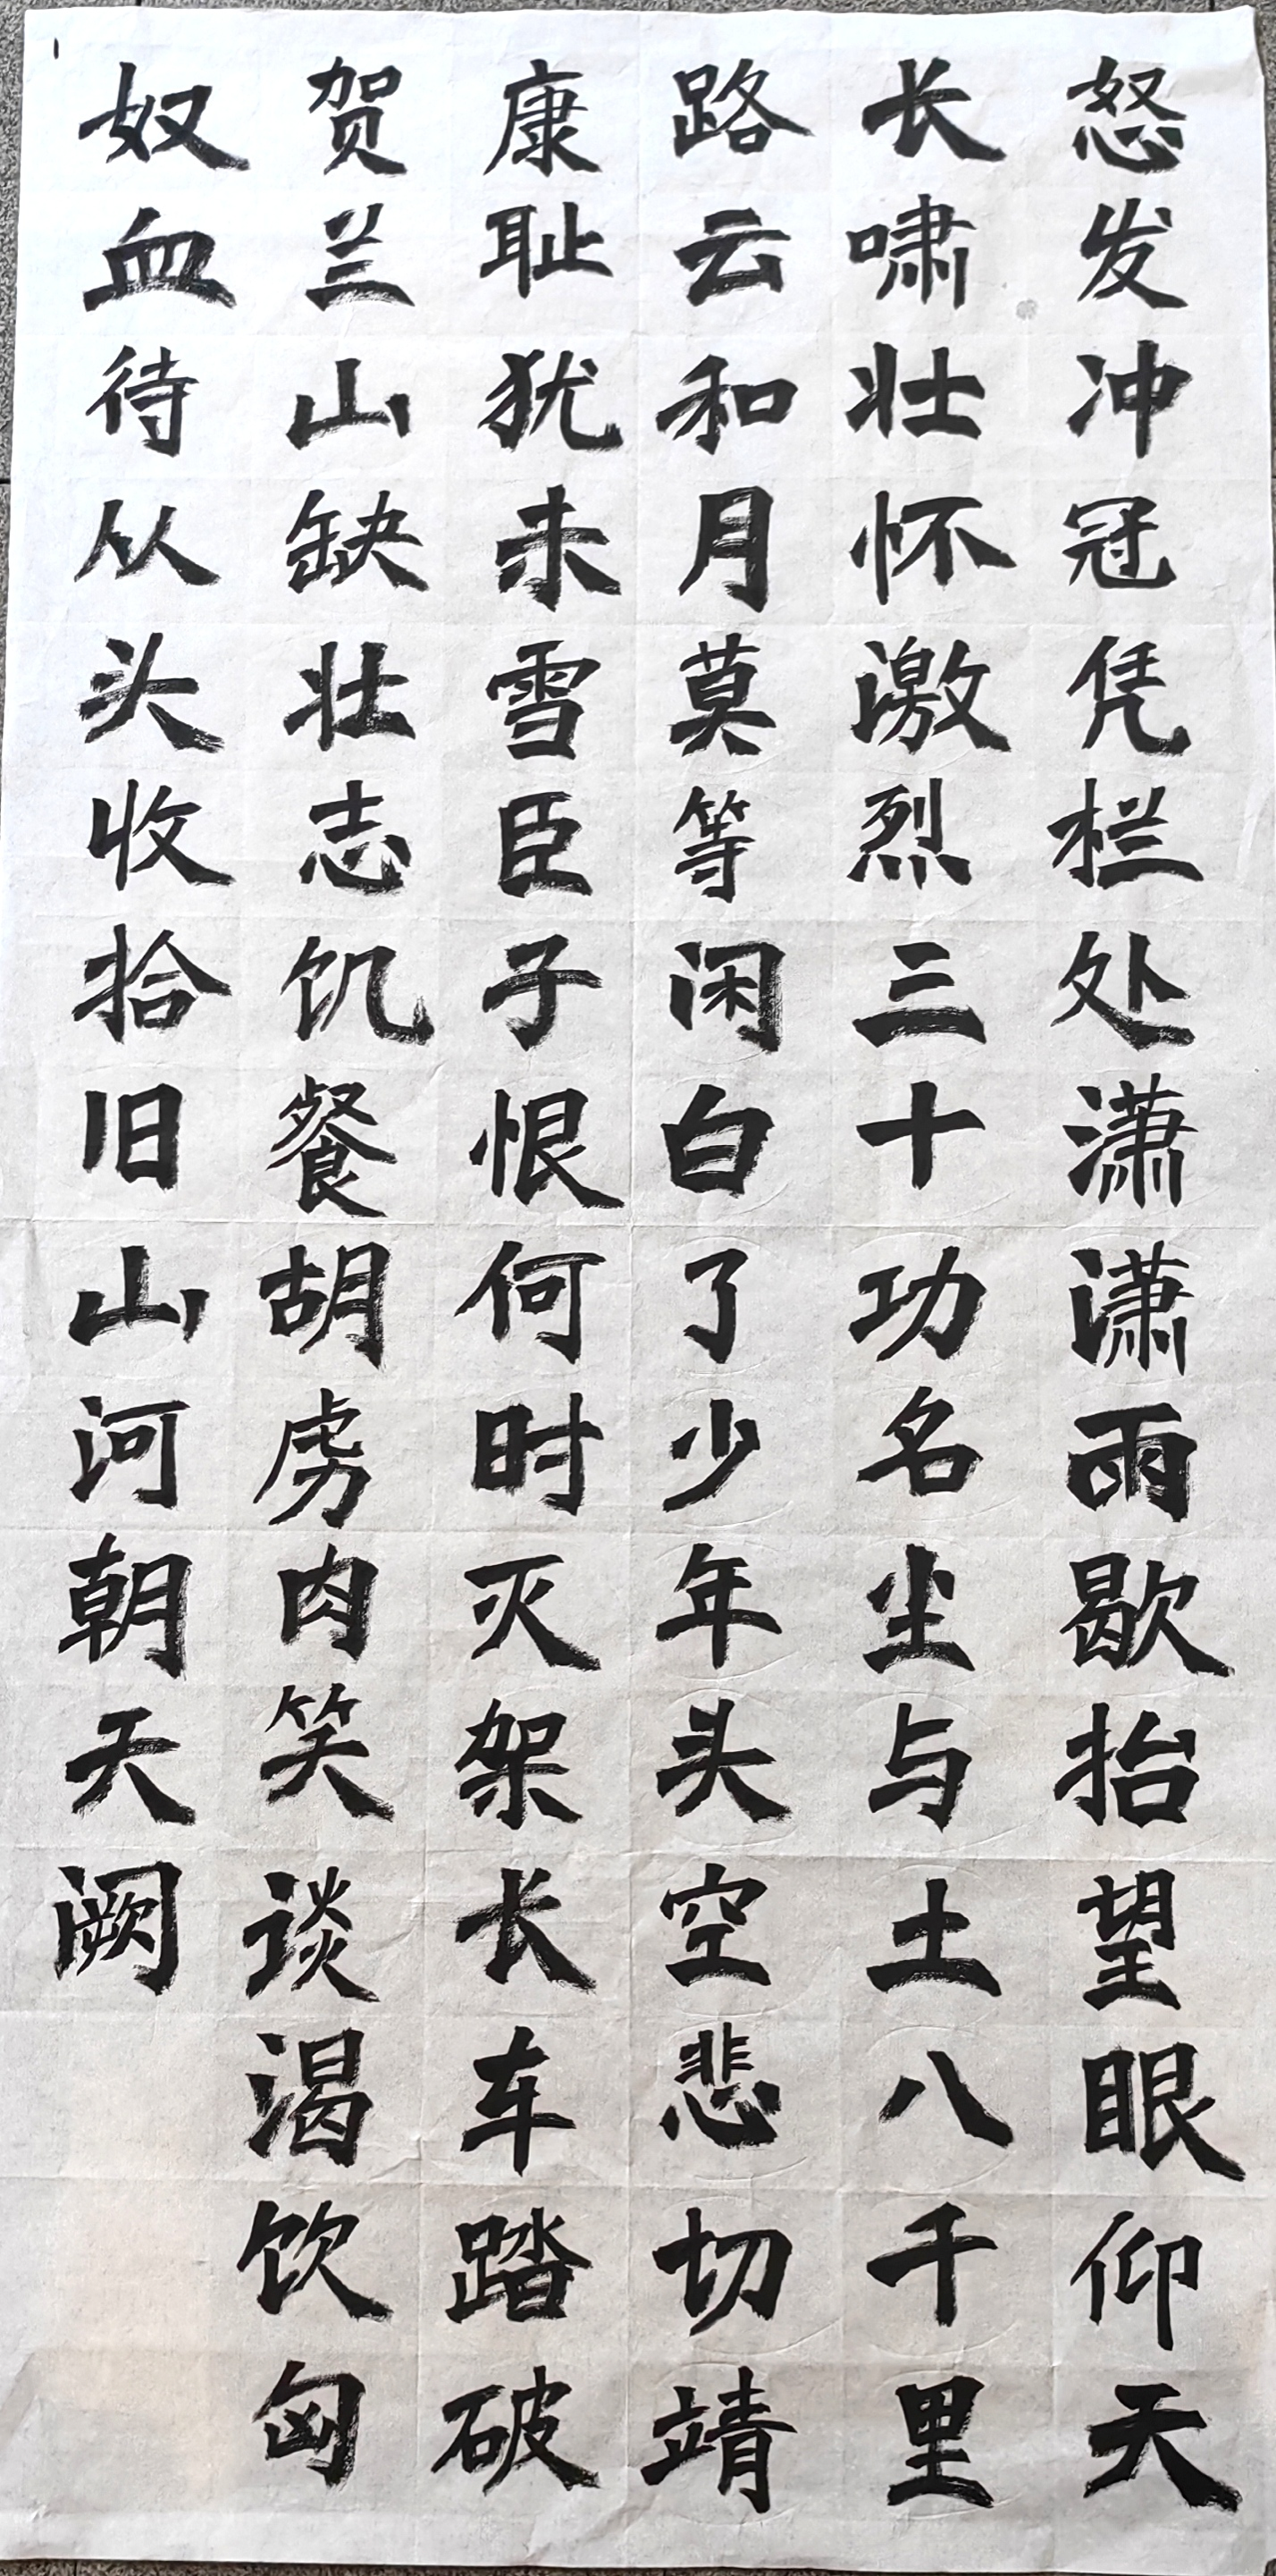 怒发冲冠凭栏处潇潇雨歇抬望眼仰天
长啸壮怀激烈三十功名尘与土八千里
路云和月莫等闲白了少年头空悲切靖
康耻犹未雪臣子恨何时灭架长车踏破
贺兰山缺壮志饥餐胡虏肉笑谈渴饮匈
奴血待从头收拾旧山河朝天阙